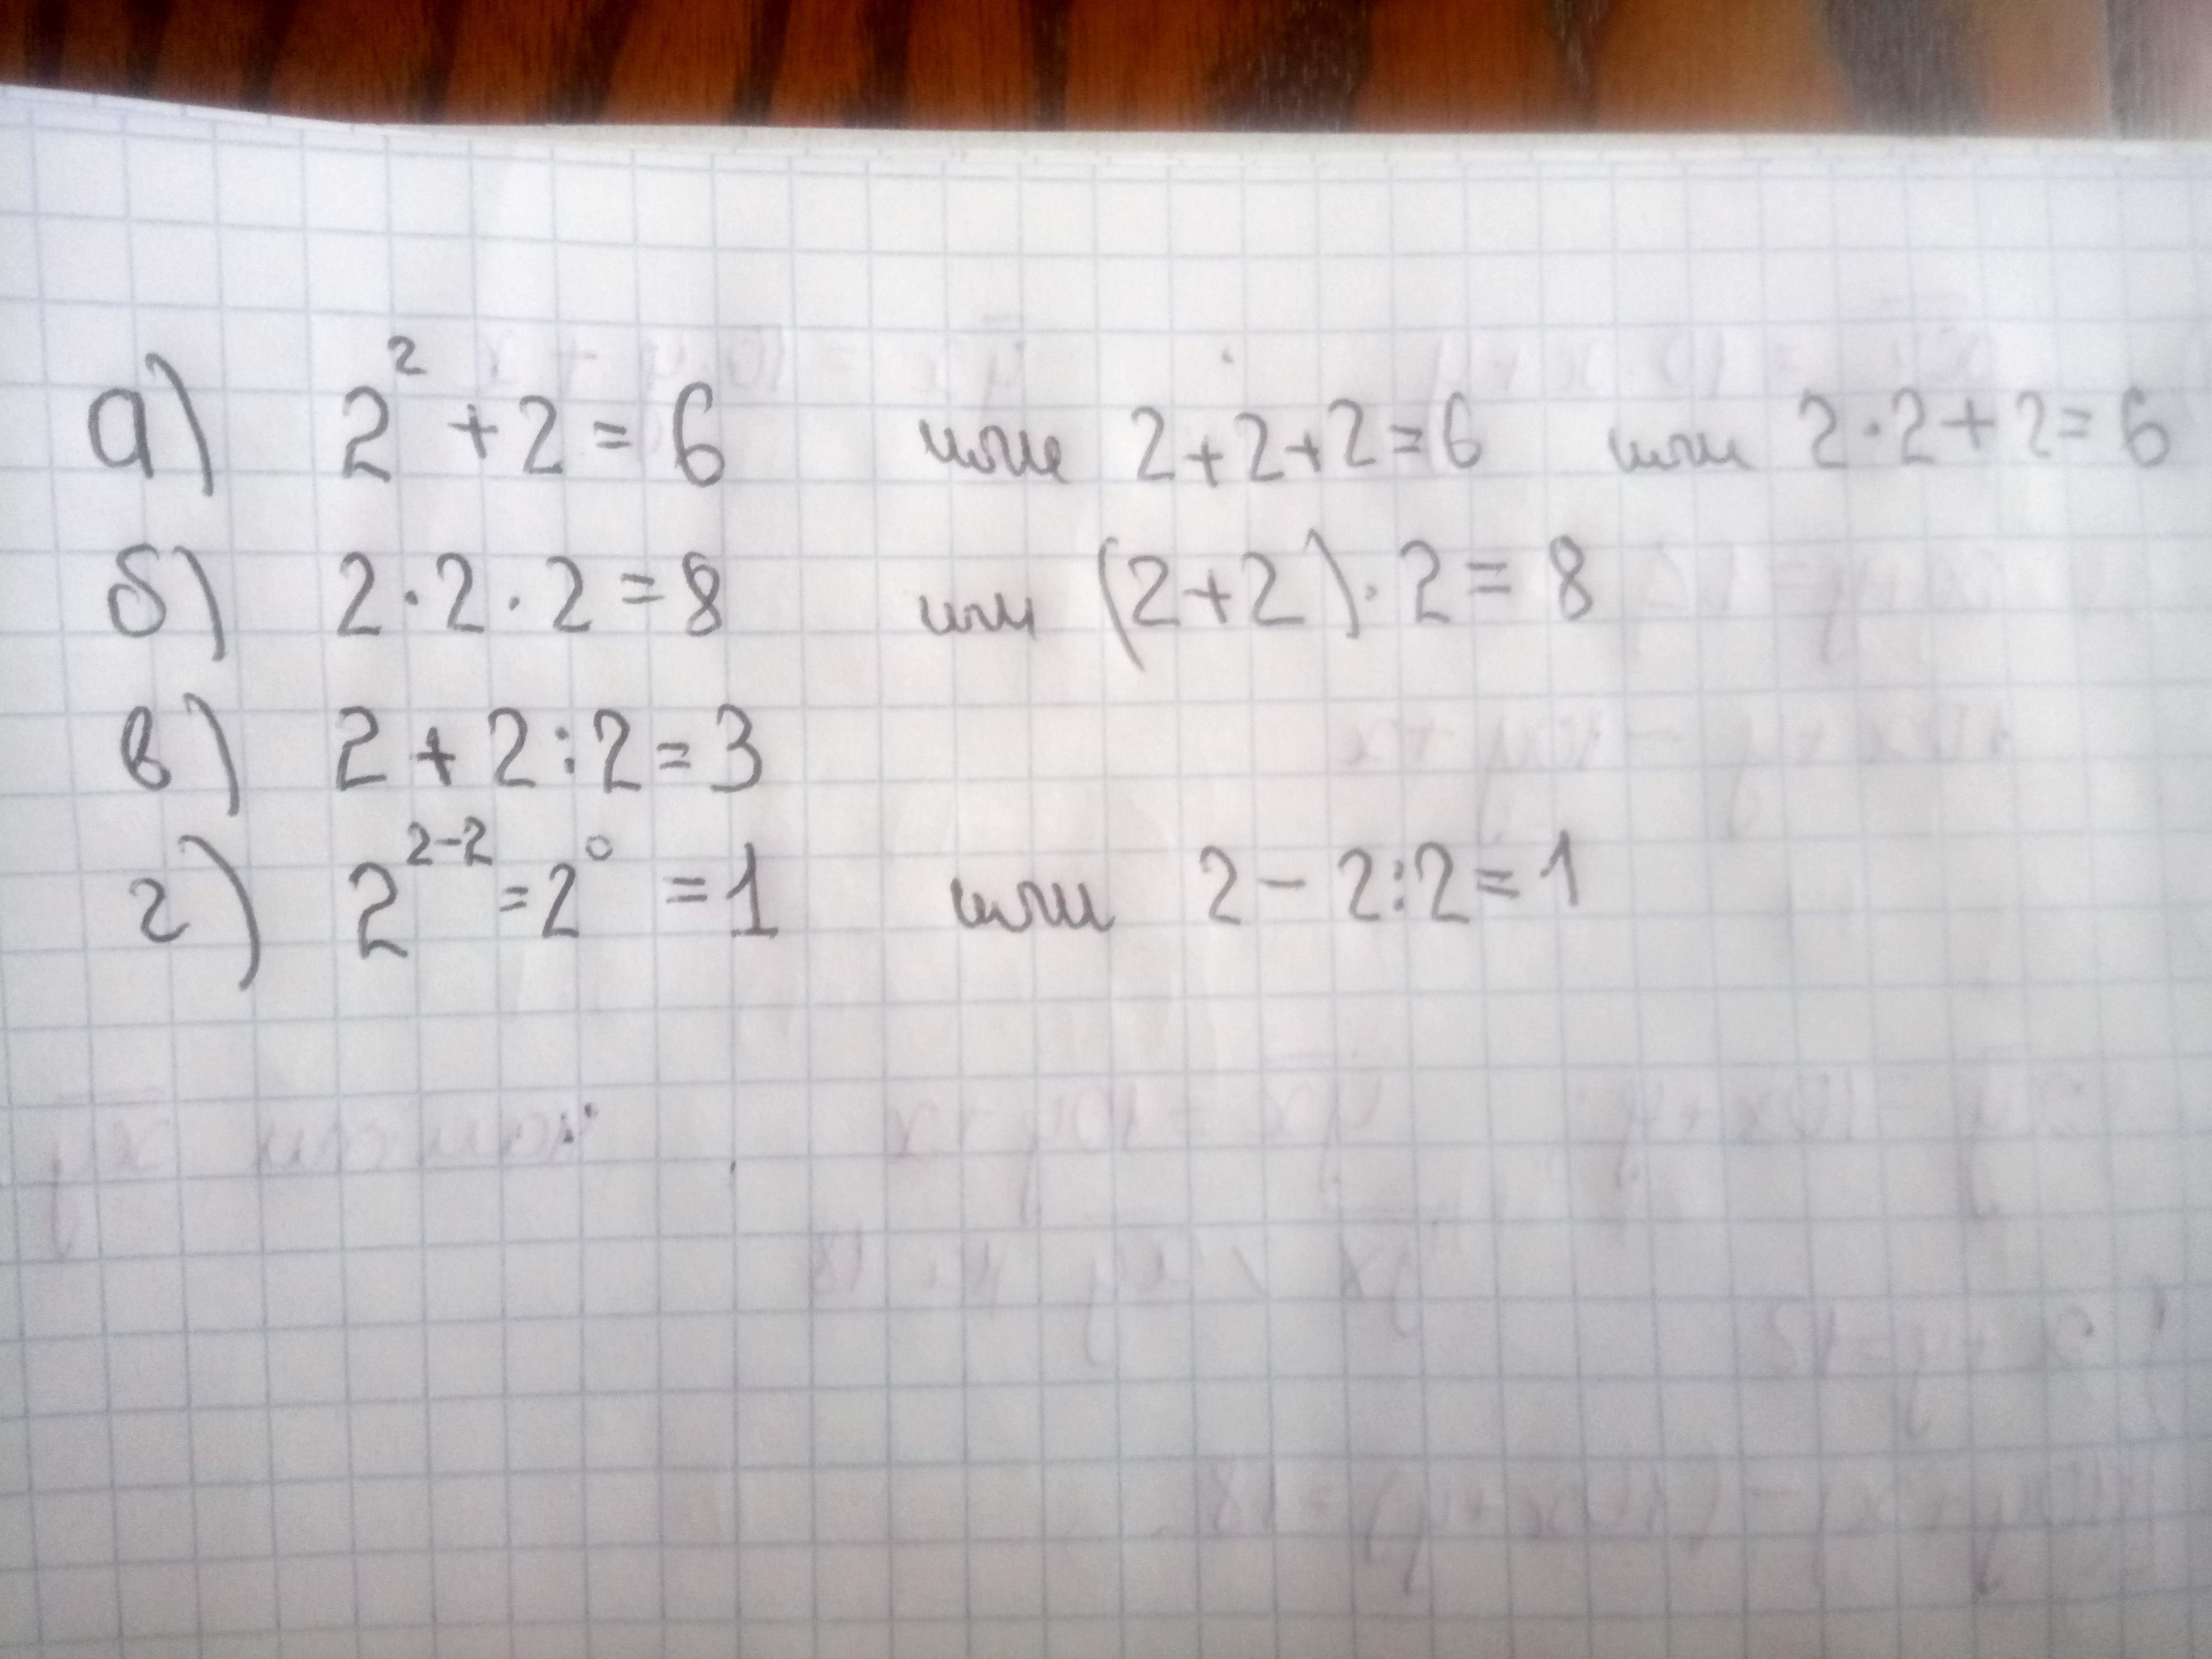 а) 2² + 2 = 6 или 2+2+2=6 или 2·2+2=6
б) 2·2·2=8 или (2+2)·2=8
в) 2+2:2=3
г) 2²⁻²=2⁰=1 или 2-2:2=1